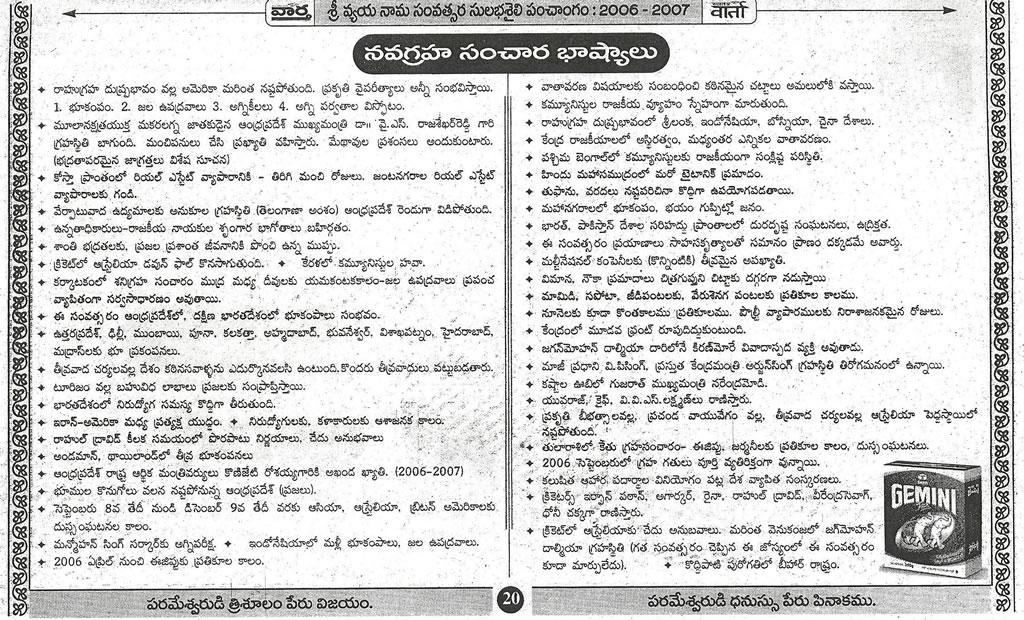 వార్త శ్రీ వ్యయ నామ సంవత్సర సులభశైలి పంచాంగం : 2006 - 2007 वार्ता
నవగ్రహ సంచార భాష్యాలు
రాహుగ్రహ దుష్ప్రభావం వల్ల అమెరికా మరింత నష్టపోతుంది. ప్రకృతి వైపరీత్యాలు అన్నీ సంభవిస్తాయి.
1. భూకంపం. 2. జల ఉపద్రవాలు 3. అగ్నికీలలు 4. అగ్ని పర్వతాల విస్ఫోటం.
మూలానక్షత్రయుక్త మకరలగ్న జాతకుడైన ఆంధ్రప్రదేశ్ ముఖ్యమంత్రి డా॥ వై.ఎస్. రాజశేఖర్‌రెడ్డి గారి
గ్రహస్థితి బాగుంది. మంచిపనులు చేసి ప్రఖ్యాతి వహిస్తారు. మేధావుల ప్రశంసలు అందుకుంటారు.
(భద్రతాపరమైన జాగ్రత్తలు విశేష సూచన)
కోస్తా ప్రాంతంలో రియల్ ఎస్టేట్ వ్యాపారానికి - తిరిగి మంచి రోజులు. జంటనగరాల రియల్ ఎస్టేట్
వ్యాపారాలకు గండి.
వేర్పాటువాద ఉద్యమాలకు అనుకూల గ్రహస్థితి (తెలంగాణా అంశం) ఆంధ్రప్రదేశ్ రెండుగా విడిపోతుంది.
ఉన్నతాధికారులు-రాజకీయ నాయకుల శృంగార భాగోతాలు బహిర్గతం.
శాంతి భద్రతలకు, ప్రజల ప్రశాంత జీవనానికి పొంచి ఉన్న ముప్పు.
క్రికెట్‌లో ఆస్ట్రేలియా డవున్ ఫాల్ కొనసాగుతుంది. ✦ కేరళలో కమ్యూనిస్టుల హవా.
కర్కాటకంలో శనిగ్రహ సంచారం ముద్ర మధ్య దీవులకు యమకంటకకాలం-జల ఉపద్రవాలు ప్రపంచ
వ్యాపితంగా సర్వసాధారణం అవుతాయి.
ఈ సంవత్సరం ఆంధ్రప్రదేశ్‌లో, దక్షిణ భారతదేశంలో భూకంపాలు సంభవం.
ఉత్తరప్రదేశ్, ఢిల్లీ, ముంబాయి, పూనా, కలకత్తా, అహ్మదాబాద్, భువనేశ్వర్, విశాఖపట్నం, హైదరాబాద్,
మద్రాస్‌లకు భూ ప్రకంపనలు.
తీవ్రవాద చర్యలవల్ల దేశం కఠినసవాళ్ళను ఎదుర్కొనవలసి ఉంటుంది.కొందరు తీవ్రవాదులు పట్టుబడతారు.
టూరిజం వల్ల బహువిధ లాభాలు ప్రజలకు సంప్రాప్తిస్తాయి.
భారతదేశంలో నిరుద్యోగ సమస్య కొద్దిగా తీరుతుంది.
ఇరాన్-అమెరికా మధ్య ప్రత్యక్ష యుద్ధం. ✦ నిరుద్యోగులకు, కళాకారులకు ఆశాజనక కాలం.
రాహుల్ ద్రావిడ్ కీలక సమయంలో పొరపాటు నిర్ణయాలు, చేదు అనుభవాలు
అండమాన్, థాయిలాండ్‌లో తీవ్ర భూకంపనలు
ఆంధ్రప్రదేశ్ రాష్ట్ర ఆర్థిక మంత్రివర్యులు కొణిజేటి రోశయ్యగారికి అఖండ ఖ్యాతి. (2006-2007)
భూముల కొనుగోలు వలన నష్టపోనున్న ఆంధ్రప్రదేశ్ (ప్రజలు).
సెప్టెంబరు 8వ తేదీ నుండి డిసెంబర్ 9వ తేదీ వరకు ఆసియా, ఆస్ట్రేలియా, బ్రిటన్ అమెరికాలకు
దుస్సంఘటనల కాలం.
మన్మోహన్ సింగ్ సర్కార్‌కు అగ్నిపరీక్ష. ✦ ఇండోనేషియాలో మళ్లీ భూకంపాలు, జల ఉపద్రవాలు.
2006 ఏప్రిల్ నుంచి ఈజిప్టుకు ప్రతికూల కాలం.
వాతావరణ విషయాలకు సంబంధించి కఠినమైన చట్టాలు అమలులోకి వస్తాయి.
కమ్యూనిస్టుల రాజకీయ వ్యూహం స్నేహంగా మారుతుంది.
రాహుగ్రహ దుష్ప్రభావంలో శ్రీలంక, ఇండోనేషియా, బోస్నియా, చైనా దేశాలు.
కేంద్ర రాజకీయాలలో అస్థిరత్వం, మధ్యంతర ఎన్నికల వాతావరణం.
పశ్చిమ బెంగాల్‌లో కమ్యూనిస్టులకు రాజకీయంగా సంక్లిష్ట పరిస్థితి.
హిందు మహాసముద్రంలో మరో టైటానిక్ ప్రమాదం.
తుఫాను, వరదలు నష్టపరిచినా కొద్దిగా ఉపయోగపడతాయి.
మహానగరాలలో భూకంపం, భయం గుప్పిట్లో జనం.
భారత్, పాకిస్తాన్ దేశాల సరిహద్దు ప్రాంతాలలో దురదృష్ట సంఘటనలు, ఉద్రిక్తత.
ఈ సంవత్సరం ప్రయాణాలు సాహసకృత్యాలతో సమానం ప్రాణం దక్కడమే అవార్డు.
మల్టీనేషనల్ కంపెనీలకు (కొన్నింటికి) తీవ్రమైన అపఖ్యాతి.
విమాన, నౌకా ప్రమాదాలు చిత్రగుప్తుని చిట్టాకు దగ్గరగా నడుస్తాయి
మామిడి, సపోటా, జీడిపంటలకు, వేరుశెనగ పంటలకు ప్రతికూల కాలము.
నూనెలకు కూడా కొంతకాలము ప్రతికూలము. పౌల్ట్రీ వ్యాపారములకు నిరాశాజనకమైన రోజులు.
కేంద్రంలో మూడవ ఫ్రంట్ రూపుదిద్దుకుంటుంది.
జగన్‌మోహన్ దాల్మియా దారిలోనే కిరణ్‌మోరే వివాదాస్పద వ్యక్తి అవుతాడు.
మాజీ ప్రధాని వి.పిసింగ్, ప్రస్తుత కేంద్రమంత్రి అర్జున్‌సింగ్ గ్రహస్థితి తిరోగమనంలో ఉన్నాయి.
కష్టాల ఊబిలో గుజరాత్ ముఖ్యమంత్రి నరేంద్రమోడి.
యువరాజ్, కైఫ్, వి.వి.ఎస్.లక్ష్మణ్‌లు రాణిస్తారు.
ప్రకృతి బీభత్సాలవల్ల, ప్రచండ వాయువేగం వల్ల, తీవ్రవాద చర్యలవల్ల ఆస్ట్రేలియా పెద్దస్థాయిలో
నష్టపోతుంది.
తులారాశిలో కేతు గ్రహసంచారం- ఈజిప్టు, జర్మనీలకు ప్రతికూల కాలం, దుస్సంఘటనలు.
2006 సెప్టెంబరులో గ్రహ గతులు పూర్తి వ్యతిరిక్తంగా వున్నాయి.
కలుషిత ఆహార పదార్థాల వినియోగం పట్ల దేశ వ్యాపిత సంస్కరణలు.
క్రికెటర్స్ ఇర్ఫాన్ పఠాన్, అగార్కర్, రైనా, రాహుల్ ద్రావిడ్, వీరేంద్రసెవాగ్,
ధోనీ చక్కగా రాణిస్తారు.
క్రికెట్‌లో ఆస్ట్రేలియాకు చేదు అనుబవాలు. మరింత వెనుకంజలో జగ్‌మోహన్
దాల్మియా గ్రహస్థితి (గత సంవత్సరం చెప్పిన ఈ జోస్యంలో ఈ సంవత్సరం
కూడా మార్పులేదు). ✦ కొద్దిపాటి పురోగతిలో బీహార్ రాష్ట్రం.
GEMINI
పరమేశ్వరుడి త్రిశూలం పేరు విజయం.
20
పరమేశ్వరుడి ధనుస్సు పేరు పినాకము.